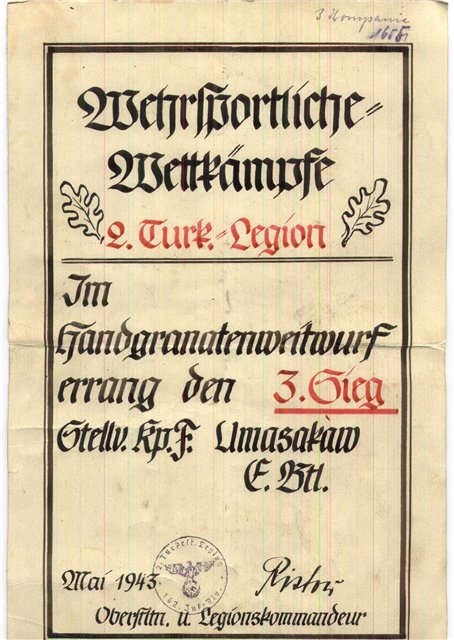 3 Kompanie
Wehrsportliche-
Wettkämpfe
2. Turk.-Legion
Im
Handgranatenweitwurf
errang den 3. Sieg
Stellv. Kp. F. Umasakaw
E. Btl.
2. Turkest. Legion
162. Inf. Div.
Mai 1943
Oberstltn. u. Legionskommandeur